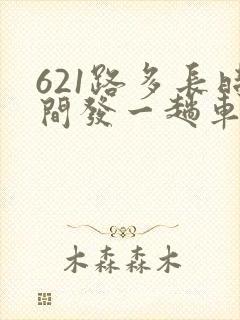 621路多长時
間發一趟車
木森森木